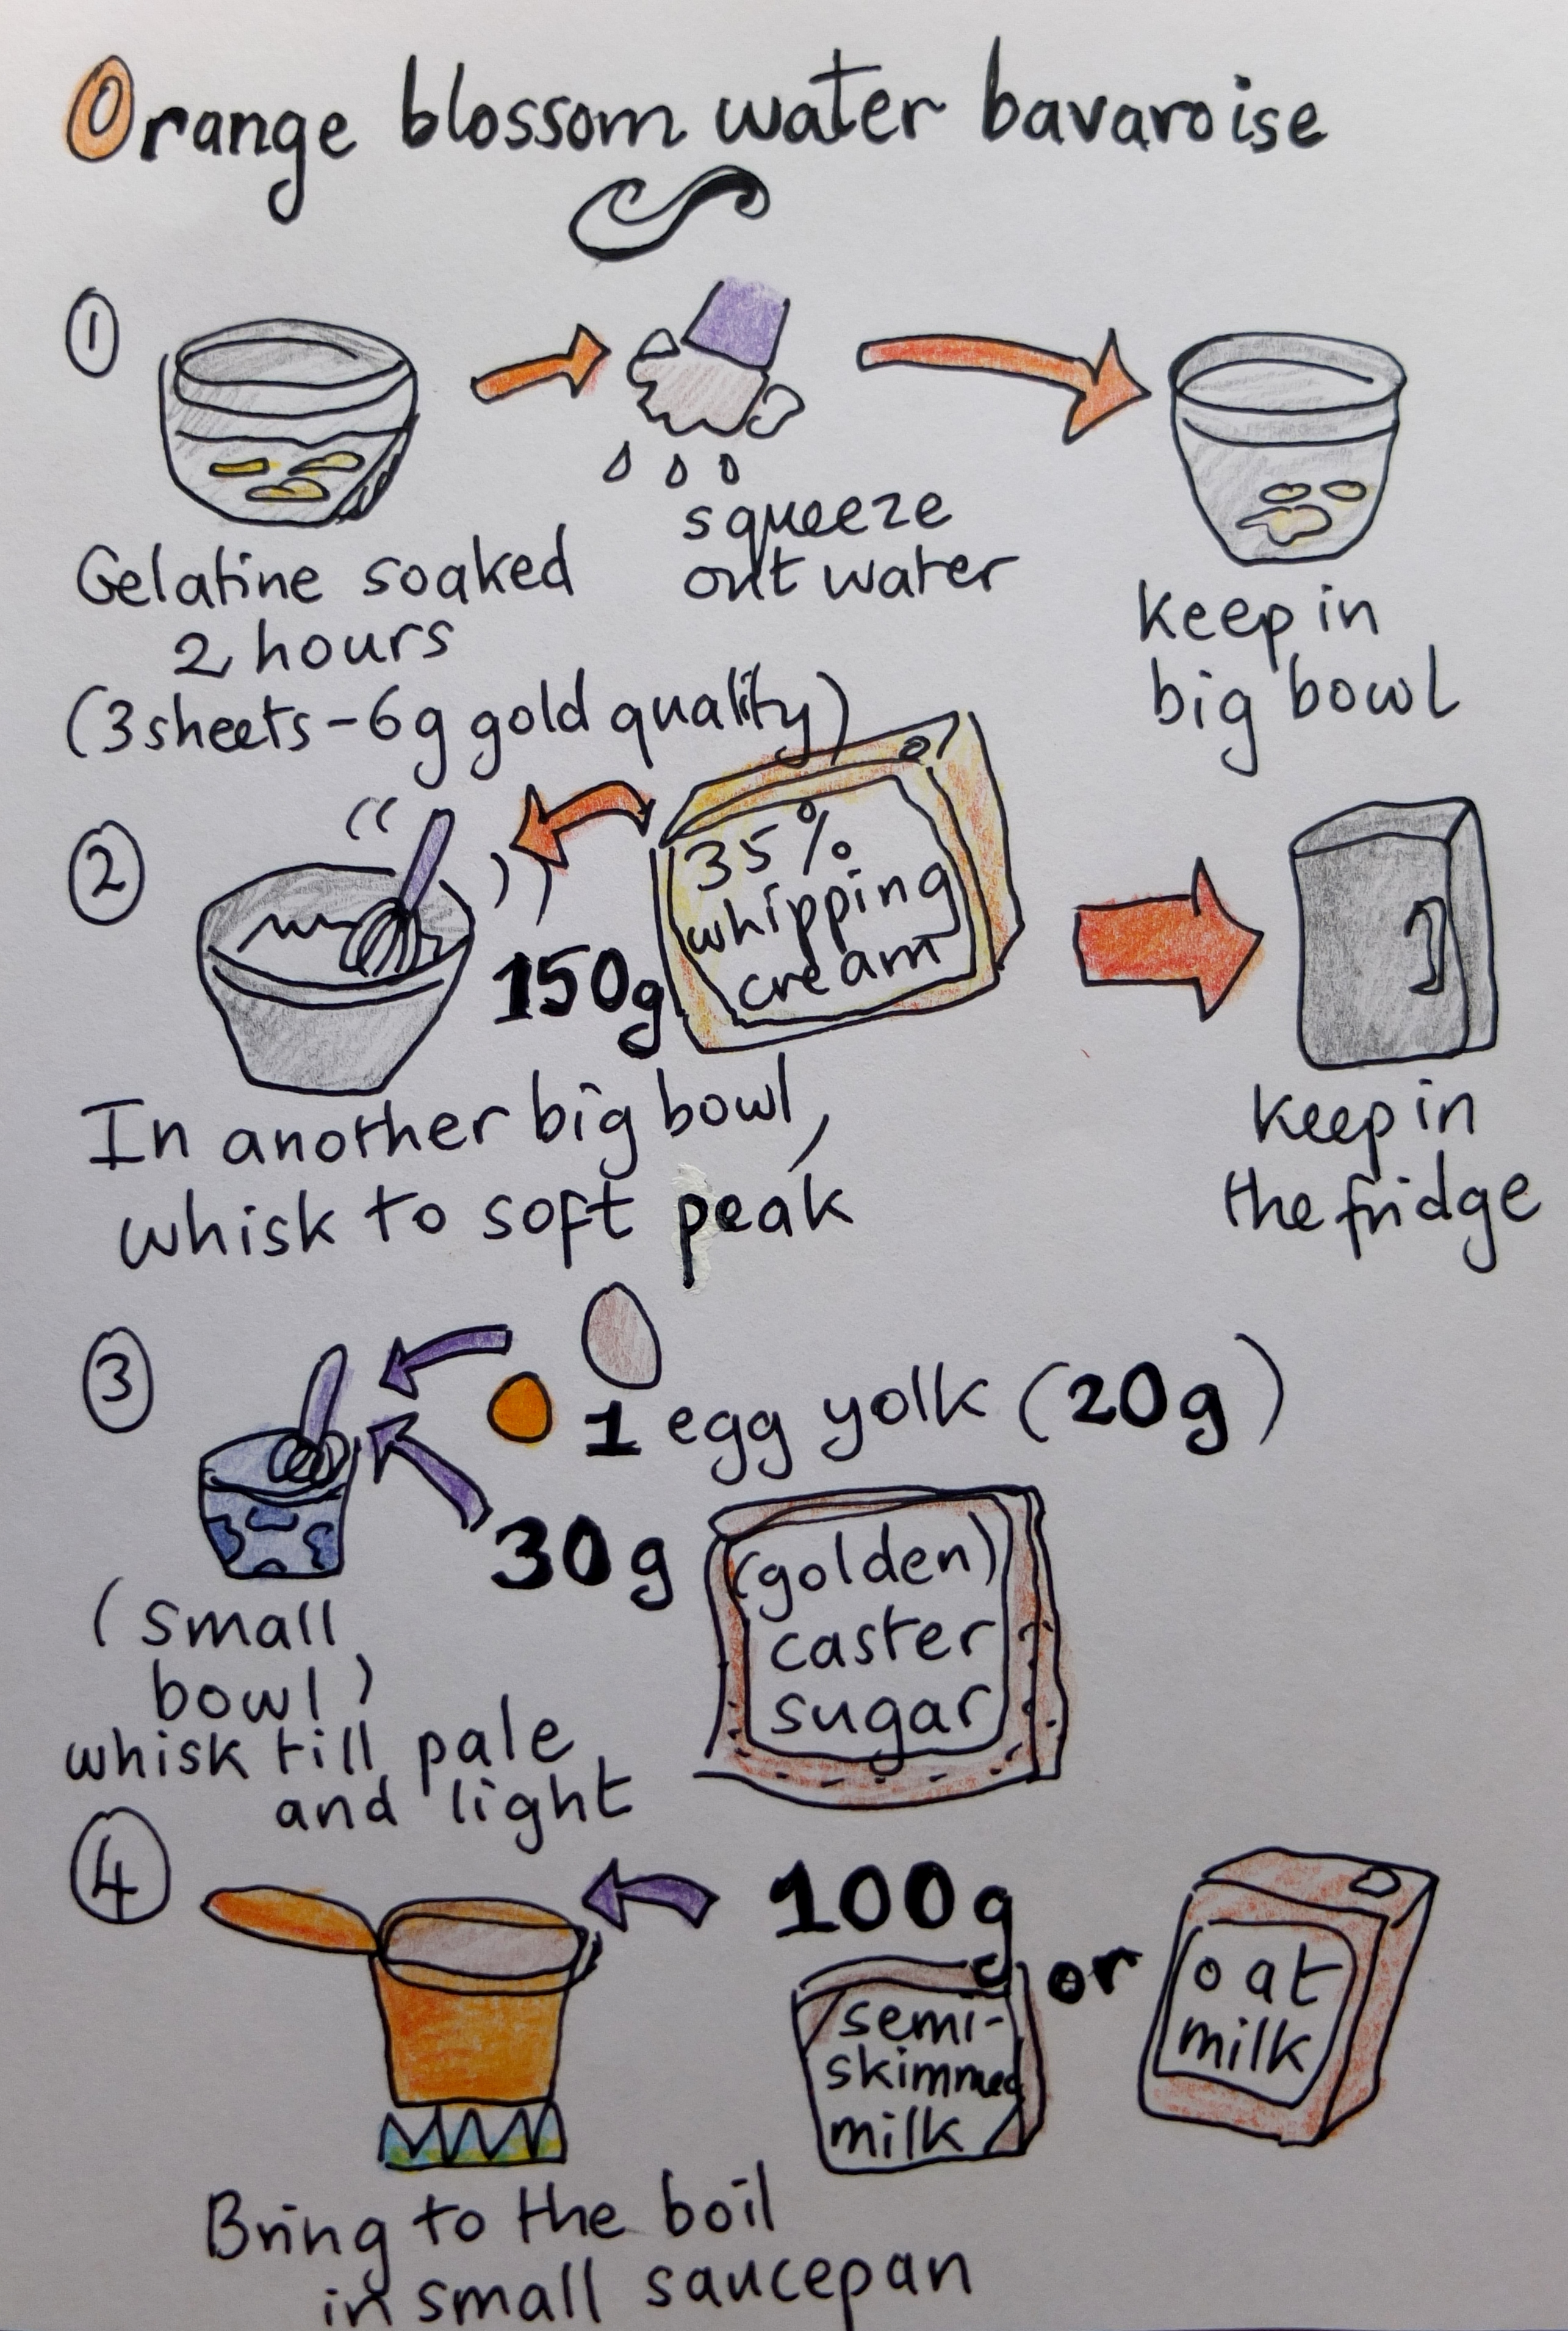 Orange blossom water bavaroise
1
Gelatine soaked
2 hours
(3 sheets - 6g gold quality)
squeeze
out water
keep in
big bowl
2
150g
35%
whipping
cream
In another big bowl,
whisk to soft peak
keep in
the fridge
3
1 egg yolk (20g)
30g
(golden)
caster
sugar
(small
bowl)
whisk till pale
and light
4
100g
semi-
skimmed
milk
or
oat
milk
Bring to the boil
in small saucepan